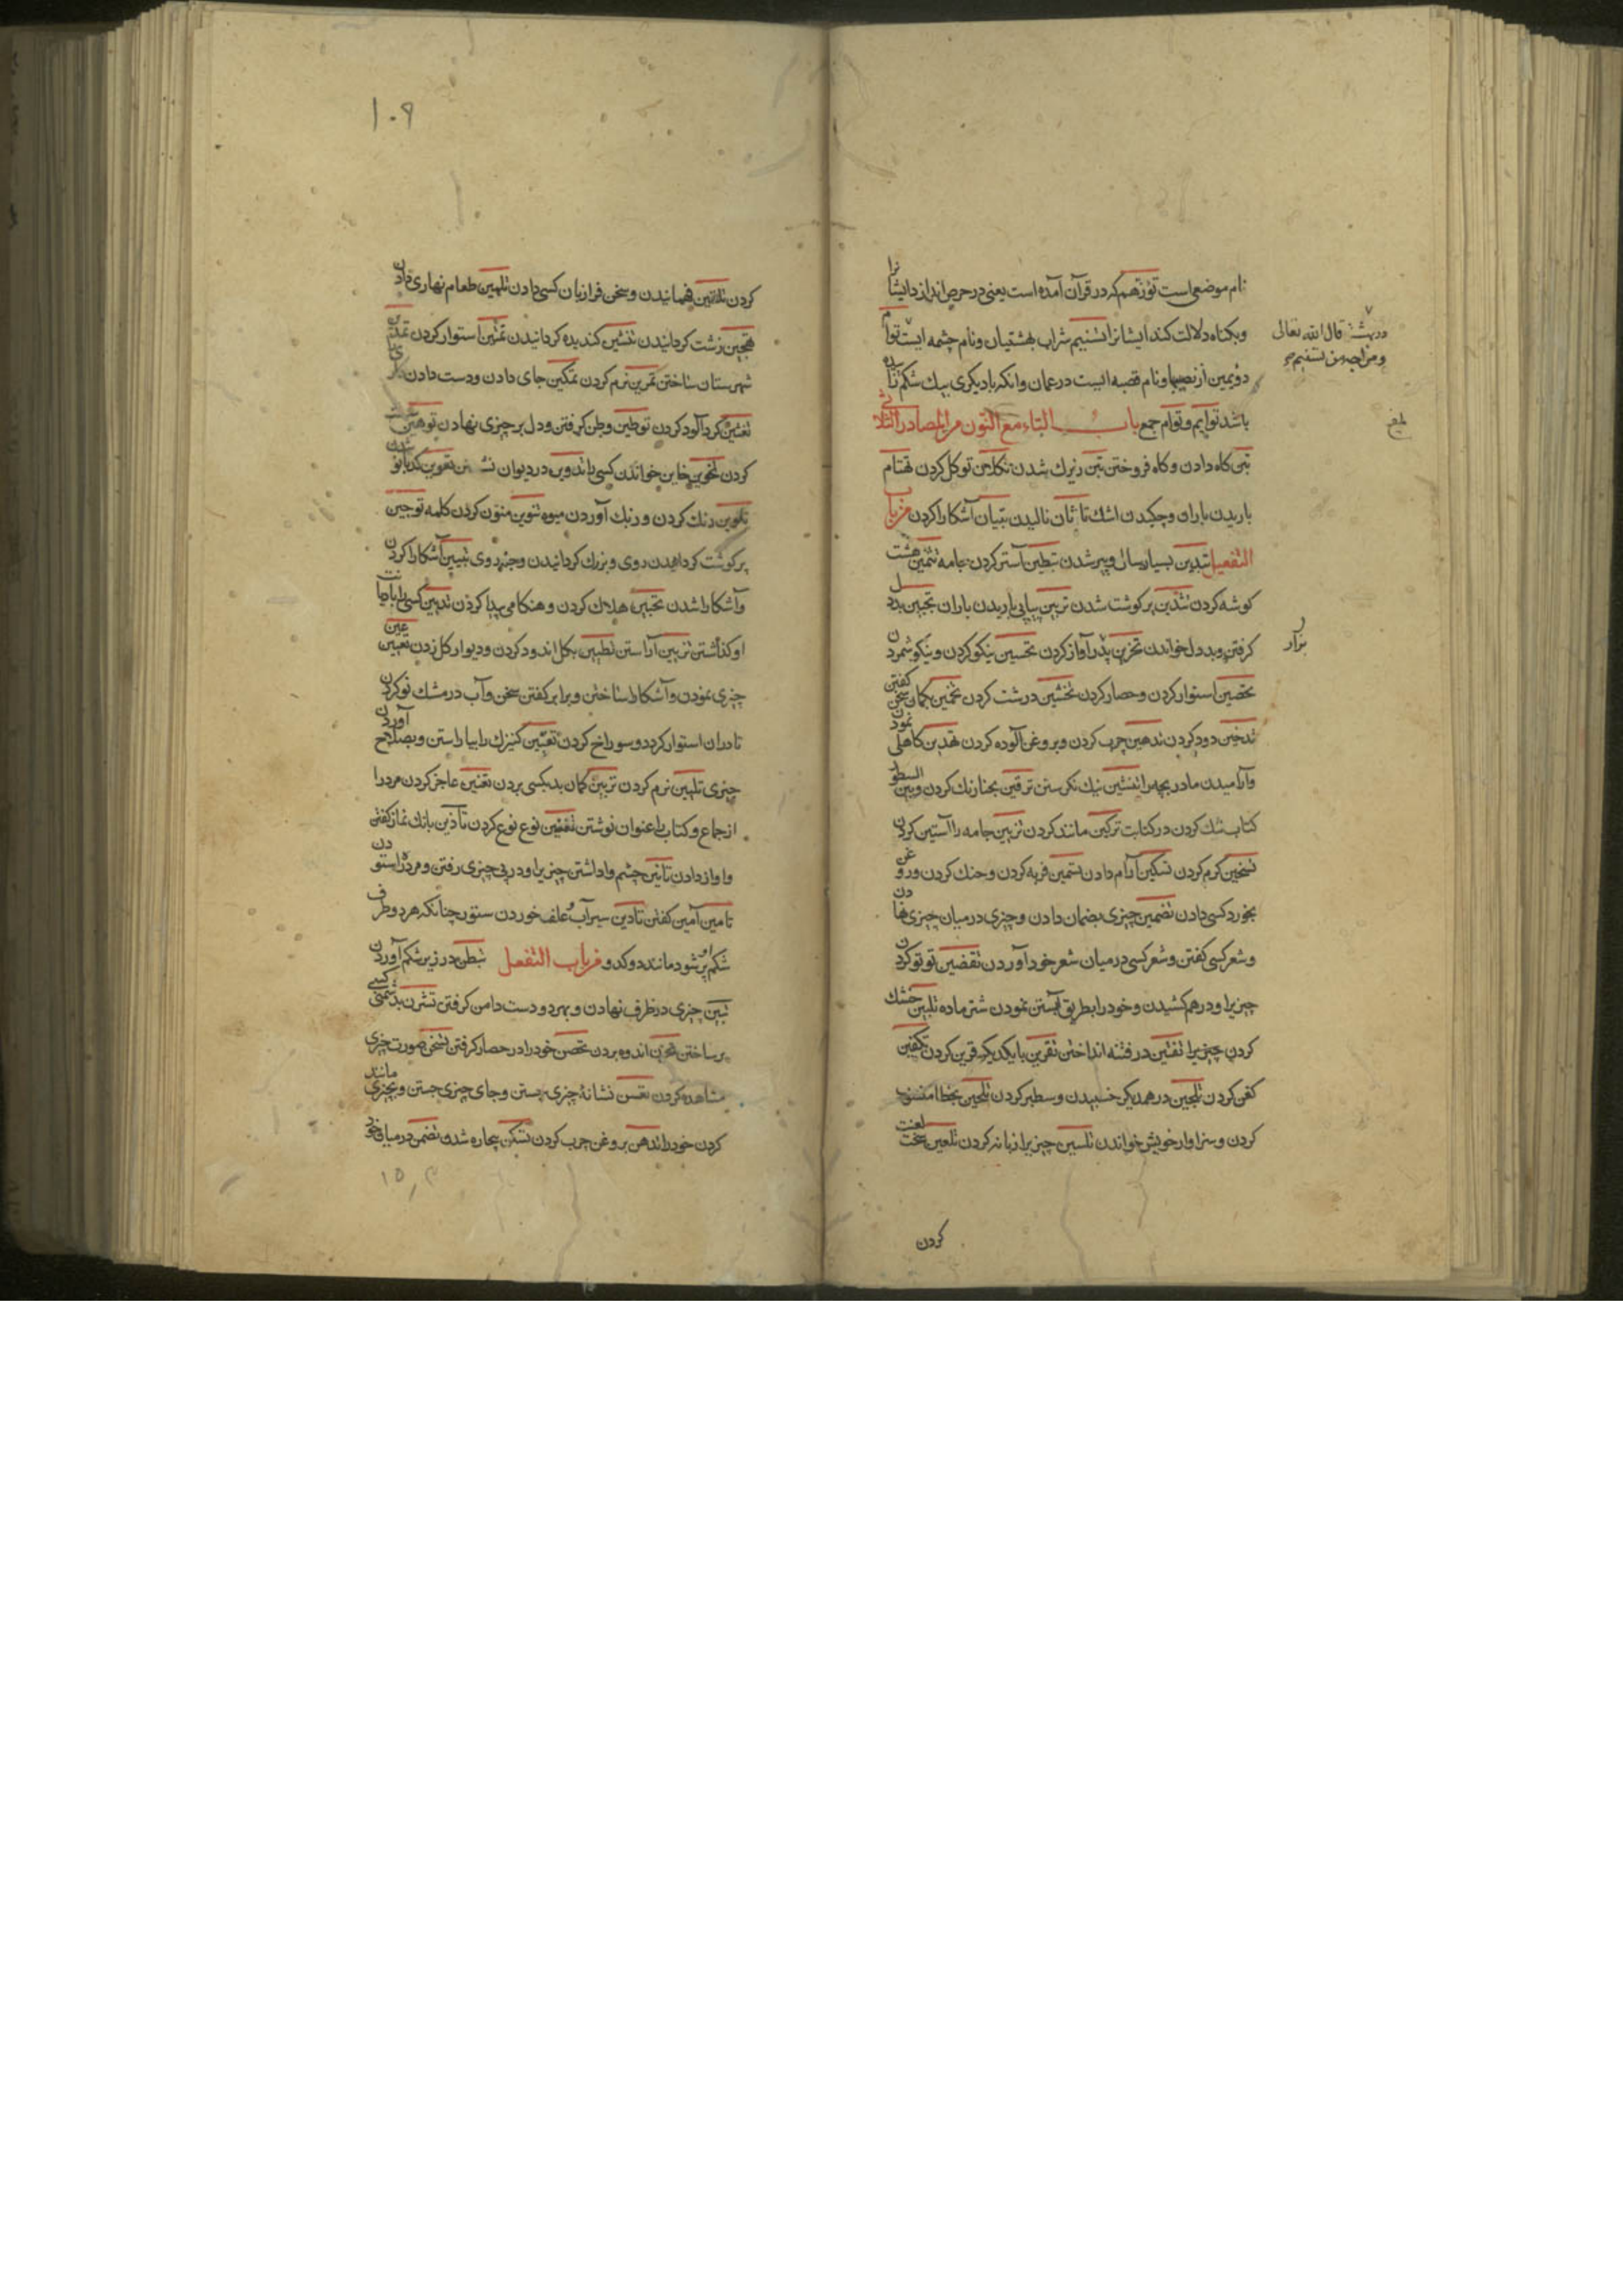 نام موضعی است تؤزهم که در قرآن آمده است یعنی در حرص اندازد ایشانرا
و بکناه دلالت کند ایشانرا تسنیم شراب بهشتیان و نام چشمه ایست توام
در بهشت قال الله تعالی
و مزاجه من تسنیم
دؤیمین از و نام قصبه ایست در عمان و انکه با دیکری بیک شکم زاده
باشد توایم و توام جمع باب التاء مع النون من المصادر الثلاثی
تبن کاه دادن و کاه فروختن تبن زیرک شدن تکلان توکل کردن تهتان
باریدن باران و چکیدن اشک تانان نالیدن تبیان آشکارا کردن من باب
التفعیل تبدین بسیار سال و پیر شدن تبطین آستر کردن جامه تثمین هشت
کوشه کردن تثدین پر کوشت شدن باریدن باران تجبین بد دل
کرفتن و بد دل خواندن تحزین آواز کردن تحسین نیکو کردن و نیکو شمردن
تحصین استوار کردن و حصار کردن تخشین درشت کردن تخمین بکمان سخن کفتن
تدخین دود کردن تدهین چرب کردن و بروغن آلوده کردن تهدین کاهلی نمودن
و آرامیدن مادر بچه را تفتین نیک نکرستن ترقین بحنا رنک کردن و بین السطور
کتاب تنک کردن در کتابت ترکین مانند کردن تزبین جامه را آستین کردن
تسخین کرم کردن تسکین آرام دادن تسمین فربه کردن و خنک کردن و روغن
بخورد کسی دادن تضمین چیزی بضمان دادن و چیزی در میان چیزی نهادن
و شعر کسی کفتن و شعر کسی در میان شعر خود آوردن تغضین تو تو کردن
چیزیرا و درهم کشیدن و خود را بطریق آبستن نمودن شتر ماده تلبین خشک
کردن چیزیرا تفتین در فتنه انداختن تقرین با یکدیکر قرین کردن تکفین
کفن کردن تلجین در همدیکر خسبیدن و سطبر کردن تلحین بخطا منسوب
کردن و سزاوار خویش خواندن تلسین چیزیرا زبانه کردن تلعین سخت لعنت
کردن
۱۰۹
کردن تلقین فهمانیدن و سخن فرا زبان کسی دادن تلهین طعام نهاری دادن
تهجین زشت کردانیدن تنتین کنده کردانیدن تمتین استوار کردن تمدین
شهرستان ساختن تمرین نرم کردن تمکین جای دادن و دست دادن
کرد آلود کردن توطین وطن کرفتن و دل بر چیزی نهادن توهین
کردن تخوین خاین خواندن کسی را تدوین در دیوان
تلوین رنک کردن و رنک آوردن میوه تنوین منون کردن کلمه توجین
پر کوشت کردانیدن روی و بزرک کردانیدن تبیین آشکارا کردن
و آشکارا شدن تحیین هلاک کردن و هنکامی پیدا کردن تدیین کسی را با دیانت
او کذاشتن تزیین آراستن تطیین بکل اندود کردن و دیوار کل زدن تعیین
چیزی نمودن و آشکارا ساختن و برابر کفتن سخن و آب در مشک نو کردن
تا دران استوار کردد و سوراخ کردن تقیین کنیزک را بیاراستن و بصلاح آوردن
چیزی تلیین نرم کردن کمان بد بکسی بردن تعنین عاجز کردن مرد را
از جماع و کتاب را عنوان نوشتن تفنین نوع نوع کردن تأذین بانک نماز کفتن
و آواز دادن چشم واداشتن چیزیرا و در پی چیزی رفتن و مرده را ستودن
تامین آمین کفتن تأدین سیر آب و علف خوردن ستور چنانکه هر دو طرف
شکم او پر شود مانند دو کدو من باب التفعل تبطن در زیر شکم آوردن
تبین چیزی در ظرف نهادن و بهر دو دست دامن کرفتن تشزن بدشمنی کسی
بر ساختن تحزن اندوه بردن تحصن خود را در حصار کرفتن تشخص صورت چیزی
مشاهده کردن نشانهٔ چیزی جستن و جای چیزی جستن و بچیزی مانند
کردن خود را تدهن بروغن چرب کردن تسکن بیچاره شدن تضمن در میان خود